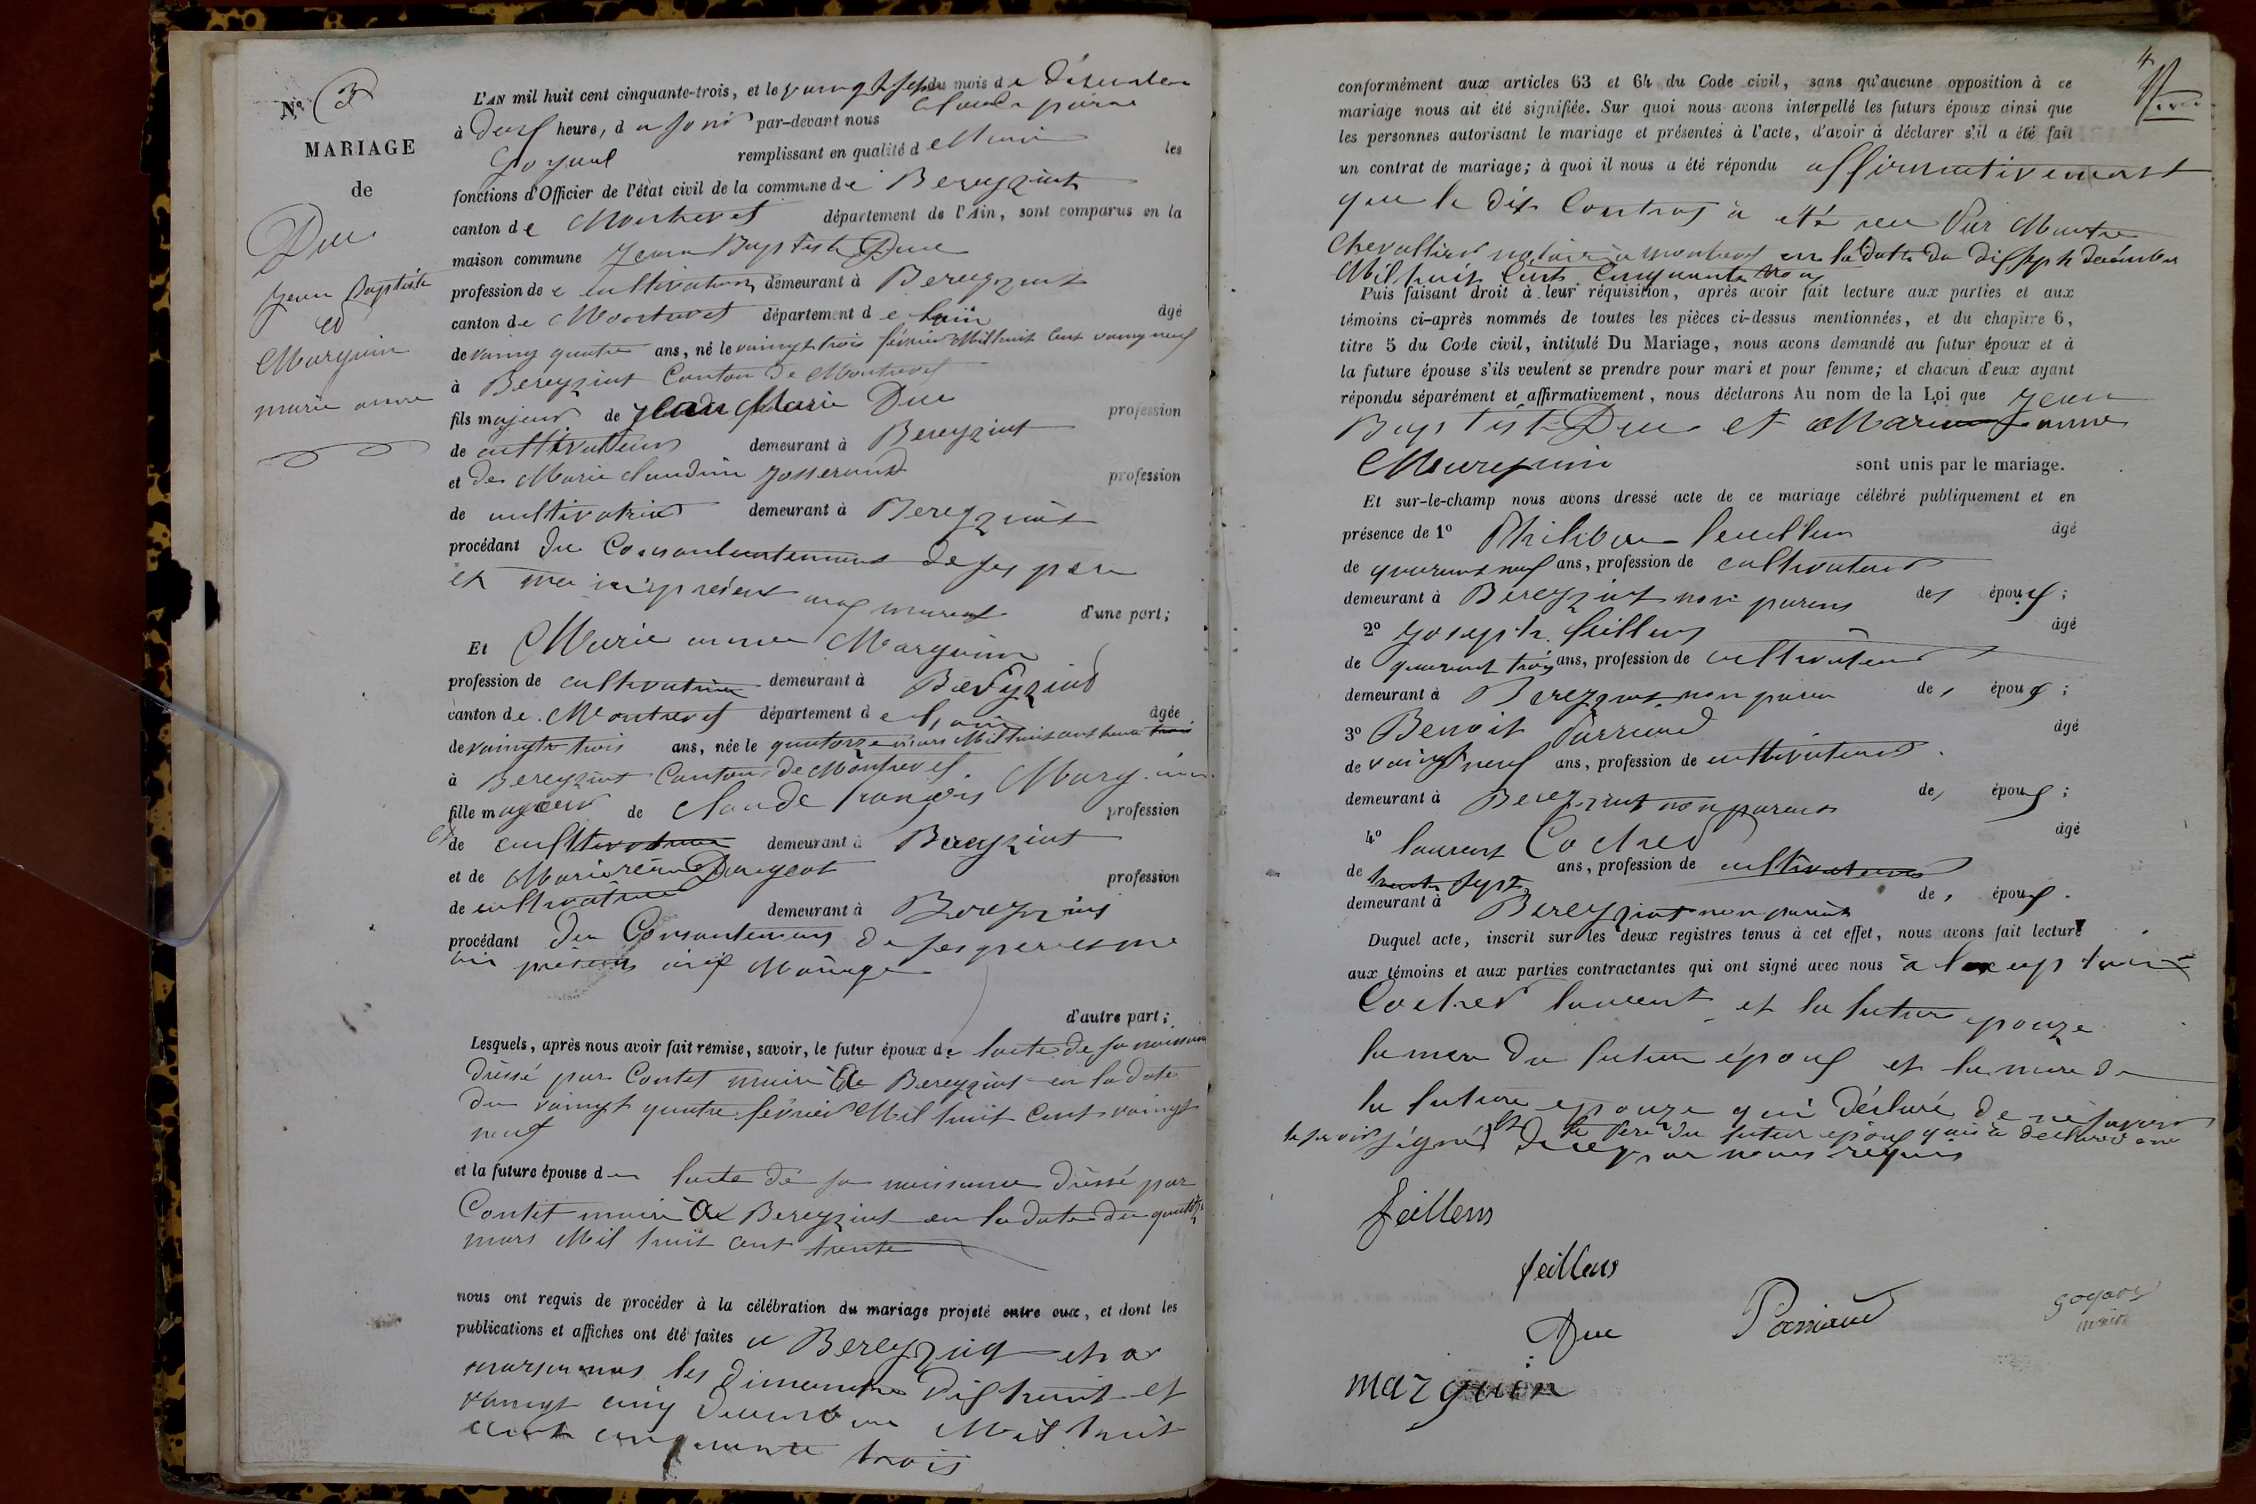 No. 3
MARIAGE
de
Duc
Jean Baptiste
et
Marguin
marie anne
L'AN mil huit cent cinquante-trois, et le vaingt sept du mois de désember
à deux heure, du soir par-devant nous Claude pierre
Goyard remplissant en qualité de Maire les
fonctions d'Officier de l'état civil de la commune de Bereyziat
canton de Montrevel département de l'Ain, sont comparus en la
maison commune Jean Baptiste Duc
profession de cultivateur demeurant à Bereyziat
canton de Montrevel département de l'ain âgé
de vaing quatre ans, né le vaingt trois février Mil huit cent vaing neuf
à Bereyziat Canton de Montrevel
fils majeur de jean Marie Duc profession
de cultivateur demeurant à Bereyziat
et de Marie claudine josserand profession
de cultivatrice demeurant à Bereyziat
procédant du Consentement de ses pere
et mere d'une part;
Et Marie anne Marguin
profession de cultivatrice demeurant à Bereyziat
canton de Montrevel département de l'ain âgée
de vaingt trois ans, née le quatorze mars Mil huit cent trente
à Bereyziat Canton de Montrevel
fille majeur de claude françois Marguin profession
de demeurant à Bereyziat
et de Marie profession
de cultivatrice demeurant à Bereyziat
procédant du Consentement de ses pere et me
d'autre part;
Lesquels, après nous avoir fait remise, savoir, le futur époux de lacte de sa naissance
dressé par Contet maire de Bereyziat en la date
du vaingt quatre février Mil huit cent vaingt
neuf
et la future épouse de lacte de sa naissance dressé par
Contet maire de Bereyziat en la date du quatorze
mars Mil huit cent trente
nous ont requis de procéder à la célébration du mariage projeté entre eux, et dont les
publications et affiches ont été faites a Bereyziat et a
marsonnas les dimanche dix huit et
vaingt cinq Décembre Mil huit
cent cinquante trois
4
conformément aux articles 63 et 64 du Code civil, sans qu'aucune opposition à ce
mariage nous ait été signifiée. Sur quoi nous avons interpellé les futurs époux ainsi que
les personnes autorisant le mariage et présentes à l'acte, d'avoir à déclarer s'il a été fait
un contrat de mariage; à quoi il nous a été répondu affirmativement
que le dit Contrat à été reçu Par Maitre
Chevallier notaire à montrevel en la date du dix sept décember
Mil huit Cent Cinquante trois
Puis faisant droit à leur réquisition, après avoir fait lecture aux parties et aux
témoins ci-après nommés de toutes les pièces ci-dessus mentionnées, et du chapitre 6,
titre 5 du Code civil, intitulé Du Mariage, nous avons demandé au futur époux et à
la future épouse s'ils veulent se prendre pour mari et pour femme; et chacun d'eux ayant
répondu séparément et affirmativement, nous déclarons Au nom de la Loi que Jean
Baptiste Duc et Marie anne
Marguin sont unis par le mariage.
Et sur-le-champ nous avons dressé acte de ce mariage célébré publiquement et en
présence de 1o Philibert feuillens âgé
de quarante neuf ans, profession de cultivateur
demeurant à Bereyziat non parens des époux;
2o Joseph feillens âgé
de quarant trois ans, profession de cultivateur
demeurant à Bereyziat non parens des époux;
3o Benoit Parriaud âgé
de vaingt neuf ans, profession de cultivateur
demeurant à Bereyziat non parens des époux;
4o laurent Cochet âgé
de trente sept ans, profession de cultivateur
demeurant à Bereyziat non parens des époux.
Duquel acte, inscrit sur les deux registres tenus à cet effet, nous avons fait lecture
aux témoins et aux parties contractantes qui ont signé avec nous
Cochet laurent et la future epouze
la mere du futur époux et la mere de
la future epouze qui déclaré de ne
signé et le Pere du futur epoux qui a déclaré
de ce par nous requis
feillens
feillens
Duc
Parriaud
goyard
maire
marguin